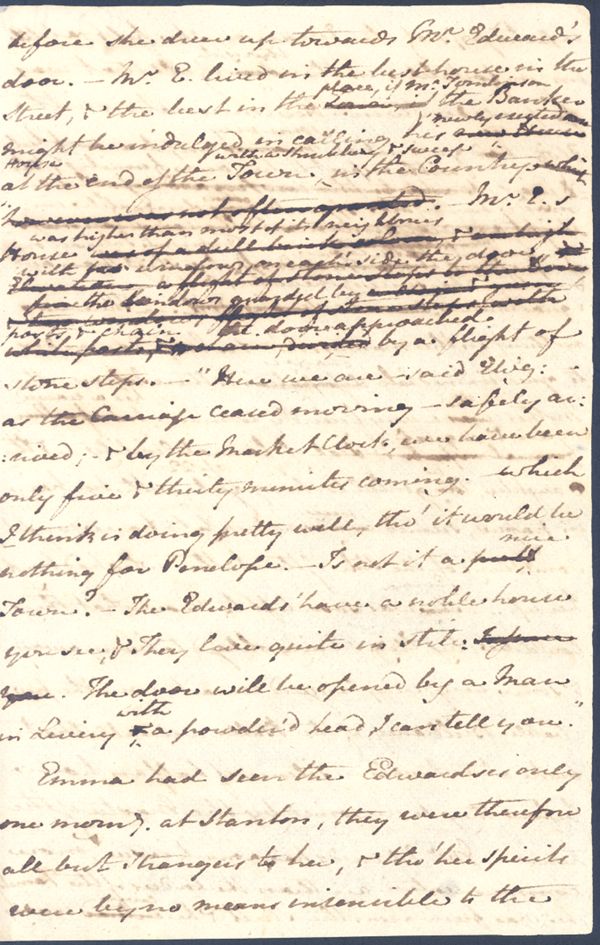 before she drew up towards Mr. Edward's
door. – Mr. E. lived in the best house in the
place, if Mr. Tomlinson
Street, & the best in the the Banker
newly erected
might be indulged in calling his
House with a shrubbery & sweep
at the end of the Town in the Country. which
was not often granted. – Mr. E.s
was higher than most of its neighbours
House
with windows on each side the door
the windows guarded by
posts & chain the door approached
by a flight of
stone steps. – "Here we are – said Eliz:
as the Carriage ceased moving – safely ar:
:rived; – & by the Market Clock, we have been
only five & thirty minutes coming. – which
I think is doing pretty well, tho' it would be
nothing for Penelope. – Is not it a nice
Town? – The Edwards' have a noble house
you see, & They live quite in stile.
you. The door will be opened by a Man
with
in Livery & a powder'd head, I can tell you."
Emma had seen the Edwardses only
one morng. at Stanton, they were therefore
all but Strangers to her, & tho' her spirits
were by no means insensible to the